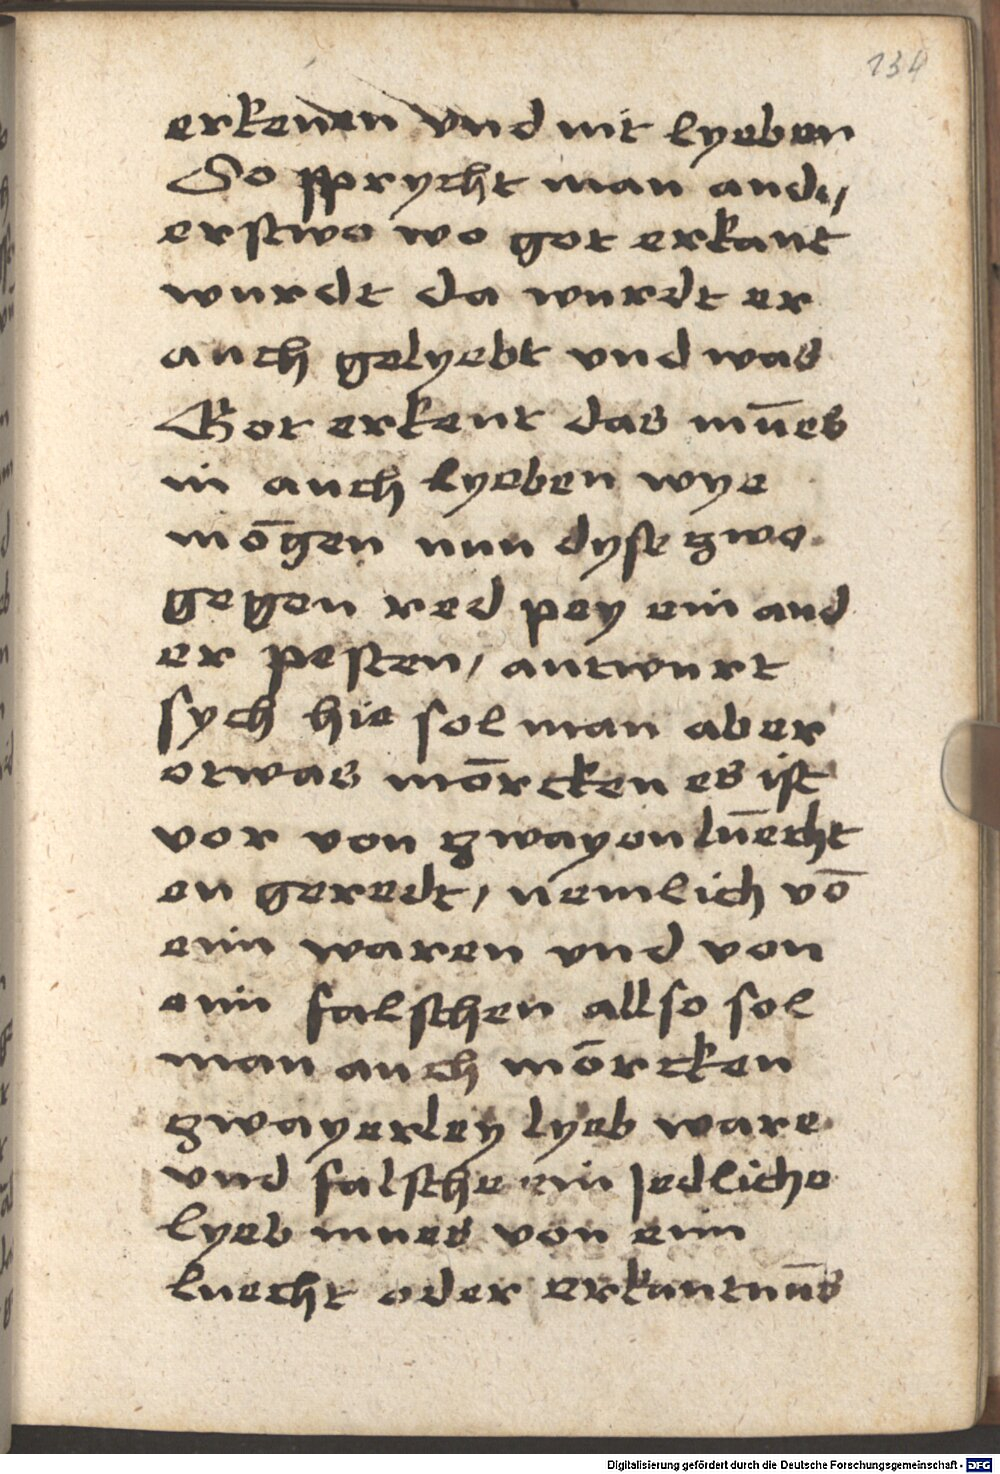 134
erkenen vnd nit lyeben
So sprycht man and,
erstwo wo got erkant
wurdt da wurdt er
auch gelyebt vnd was
Got erkent das mūes
in auch lyeben wye
mōgen nun dyse zwo
gegen red pey ein and
er pesten, antwurt
sych hie sol man aber
etwas mōrcken es ist
vor von zwayen lūecht
en geredt, nemlich vō
eim waren vnd von
eim falschen allso sol
man auch mōrcken
zwayerley lyeb ware
vnd falsche ein Jedliche
lyeb mues von eim
luecht oder erkantnūs
Digitalisierung gefördert durch die Deutsche Forschungsgemeinschaft - DFG